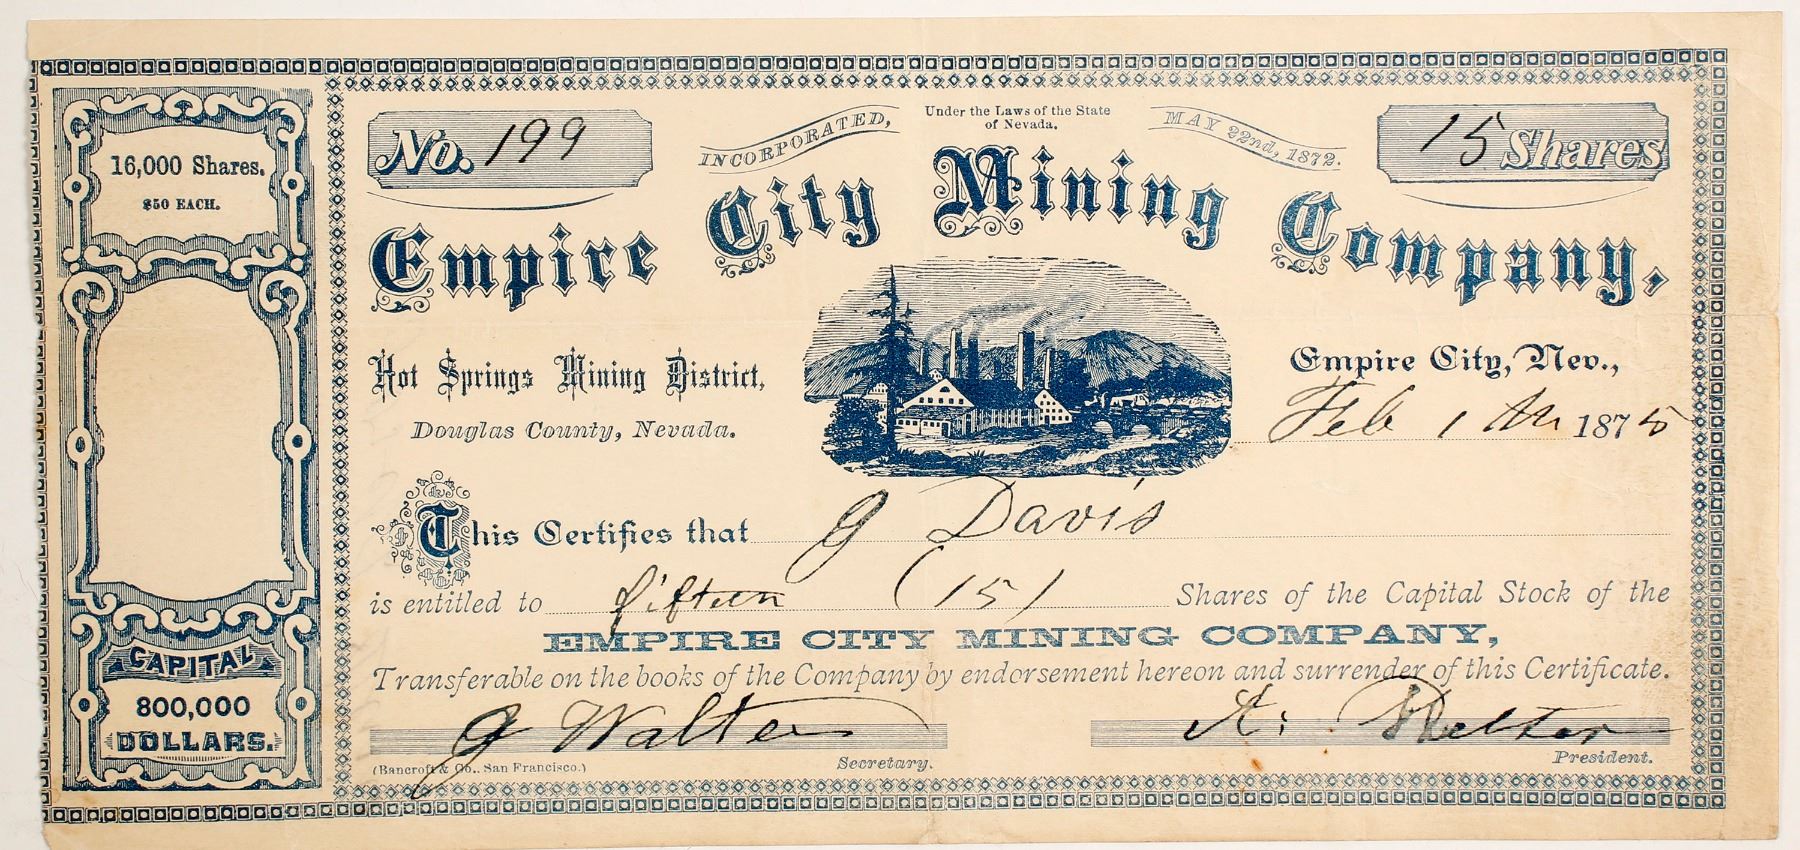 16,000 Shares.
$50 EACH.
CAPITAL
800,000
DOLLARS.
No. 199
INCORPORATED,
Under the Laws of the State
of Nevada,
MAY 22nd, 1872.
15 Shares
Empire City Mining Company,
Hot Springs Mining District,
Douglas County, Nevada.
Empire City, Nev.,
Feb 1 1875
This Certifies that J Davis
is entitled to fifteen (15) Shares of the Capital Stock of the
EMPIRE CITY MINING COMPANY,
Transferable on the books of the Company by endorsement hereon and surrender of this Certificate.
J Walter
Secretary.
President.
(Bancroft & Co., San Francisco.)